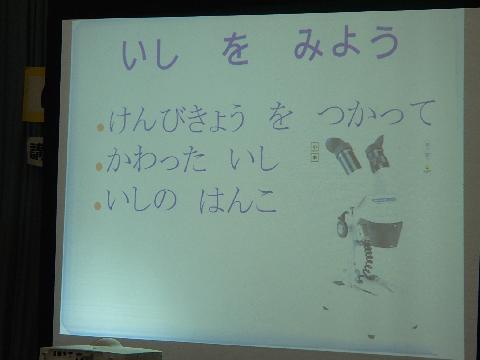 いし を みよう
けんびきょう を つかって
かわった いし
いしの はんこ